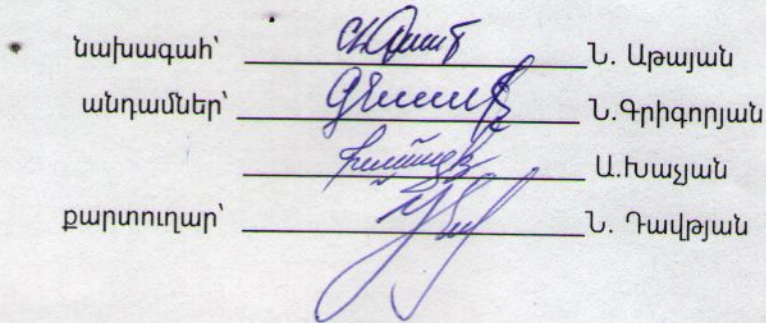 նախագահ՝ Ն. Աթայան
անդամներ՝ Ն.Գրիգորյան
Ա.Խաչյան
քարտուղար՝ Ն. Դավթյան